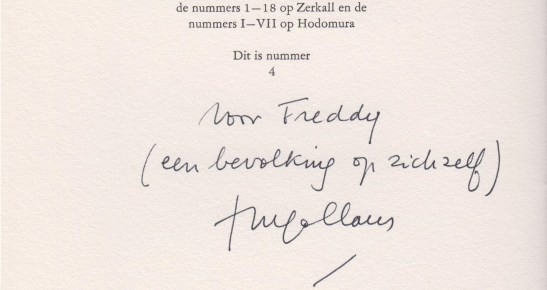 de nummers 1—18 op Zerkall en de
nummers I—VII op Hodomura
Dit is nummer
4
Voor Freddy
(een bevolking op zichzelf)
Hugo Claus